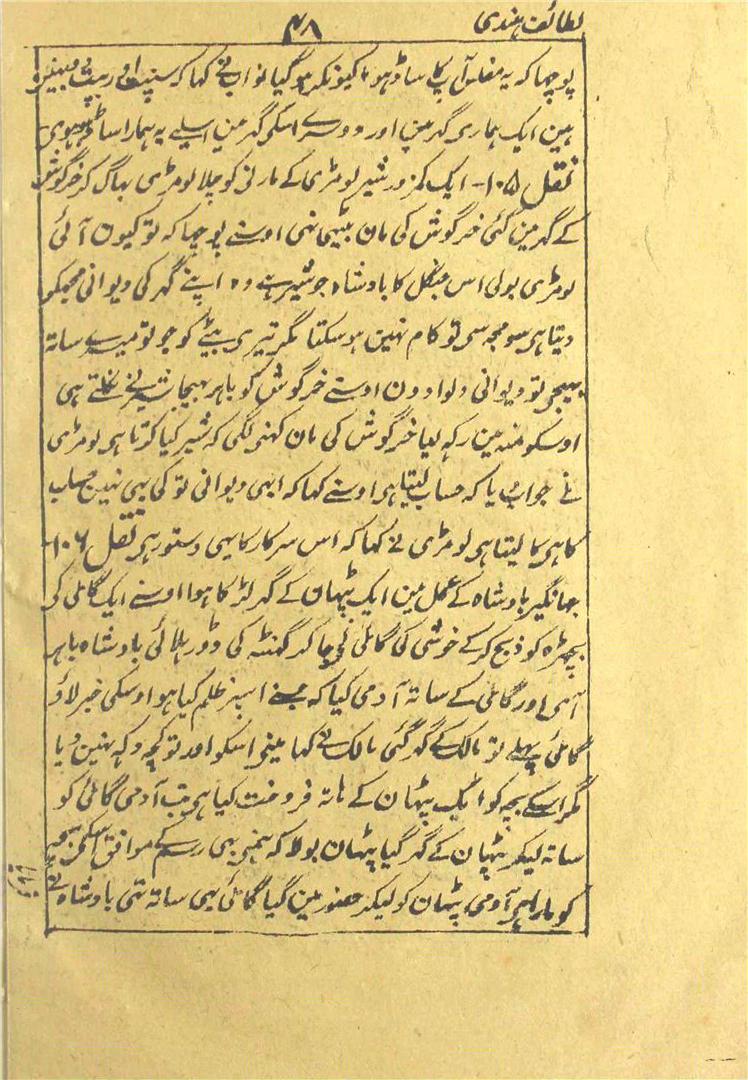 لطائف ہندی
۴۸
پوچھا کہ یہ مفلس آپ کا ساڈہو، کیونکر ہو گیا نواب نے کہا کہ سنپت اور بپت دو بہنیں
ہین ایک ہماری گہر مین اور دوسرے اسکی گہر مین اسلیے یہ ہمارا ساڈہو ہوی
نقل ۱۰۵- ایک کمزور شیر لومڑی کے مارنی کو چلا لومڑی بہاگ کر خرگوش
کے گہر مین گئی خرگوش کی مان بیٹھی تہی اوسنے پوچہا کہ تو کیون آئی
لومڑی بولی اس جنگل کا بادشاہ جو شیر ہے وہ اپنے گہر کی دیوانی مجہکو
دیتا ہی سو مجہ سی تو کام نہین ہو سکتا مگر تیری بیٹے کو جو تو میرے ساتہ
بہیجی تو دیوانی دلوا دون اوسنے خرگوش کو باہر بہیجا شیر نے نکلتے ہی
اوسکو منہ مین رکہ لیا خرگوش کی مان کہنی لگی کہ شیر کیا کرتا ہی لومڑی
نے جواب دیا کہ حساب لیتا ہی اوسنے کہا کہ ابہی دیوانی تو کی ہی نہین حساب
کاہی کا لیتا ہی لومڑی نے کہا کہ اس سرکار کا یہی دستور ہی نقل ۱۰۶-
جہانگیر بادشاہ کے عمل مین ایک پٹہان کے گہر لڑکا ہوا اوسنے ایک گائی کی
بچہڑہ کو ذبح کر کے خوشی کی گائی نی جا کر گہنٹہ کی ڈور ہلائی بادشاہ باہر
آئی اور گائی کے ساتہ آدمی کیا کہ جسنے اسپر ظلم کیا ہو اوسکی خبر لاؤ
گائی پہلے تو مالک کے گہر گئی مالک نے کہا مینی اسکو اور تو کچہ دکہ نہین دیا
مگر اسکے بچہ کو ایک پٹہان کے ہاتہ فروخت کیا ہی تب آدمی گائی کو
ساتہ لیکر پٹہان کے گہر گیا پٹہان بولا کہ ہمنی بہی رسم کے موافق اسکی بچہ
کو مارا ہی آدمی پٹہان کو لیکر حضور مین گیا گائی بہی ساتہ تہی بادشاہ نے